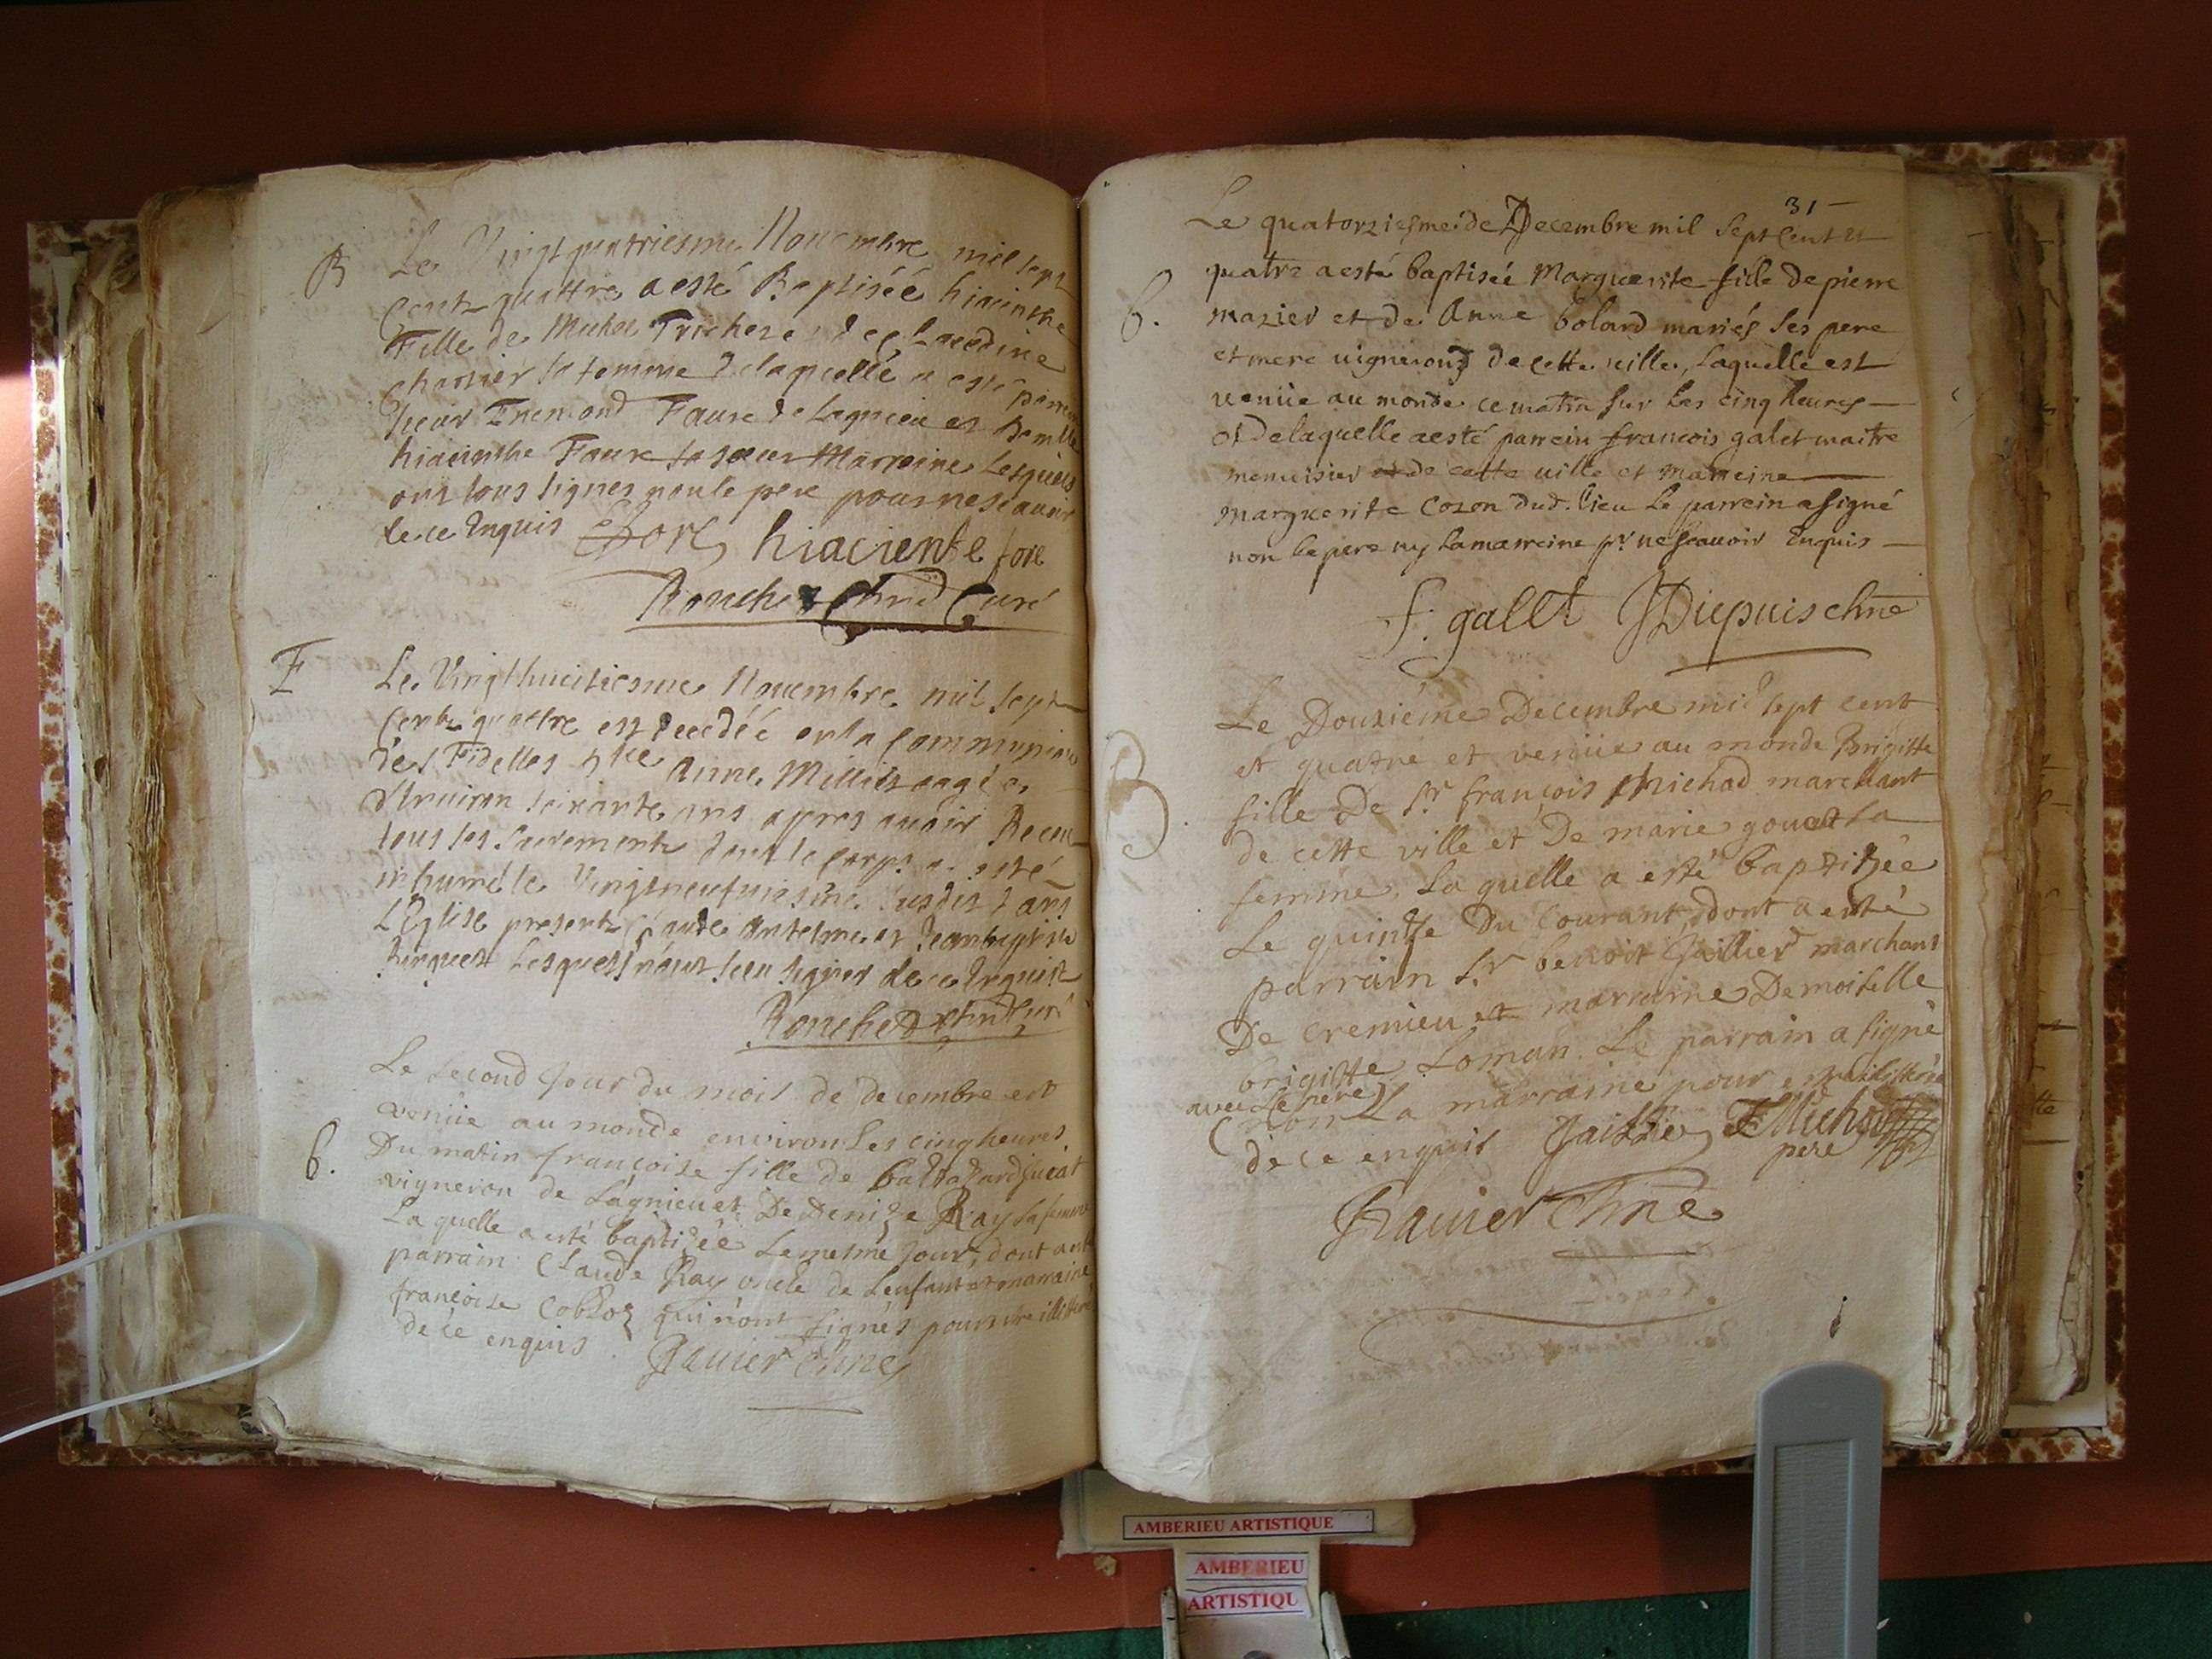 B
Le Vingt quatriesme Novembre mil sept
Cent quattre a esté Baptisée hiacinthe
Fille de Michel et de Claudine
Charrier sa femme de laquelle a esté parrain
Faure de Lagnieu et Demlle
hiacinthe Faure sa soeur Marreine Lesquels
ont tous signes non le pere pour ne scauoir
de ce Enquis fore hiaciente fore
Rouchet Curé
F
Le Vingthuictiesme Nouembre mil sept
Cent quattre est decedée en la Communion
des Fidelles Anne Milliet aagée
d'Enuiron soixante ans apres auoir Receu
tous les Sacrements dont le Corps a esté
inhumé le Vingtneufuiesme susdit dans
L'Eglise presents Claude Antelme et Jeanbaptiste
Lesquels n'ont sceu signer de ce Enquist
Rouchet Curé
Le second Jour du mois de decembre est
venüe au monde environ Les cinq heures
B.
Du matin françoise fille de Baltazard
vigneron de Lagnieu et De Denize Ray sa femme
La quelle a esté baptizéé Le mesme Jour, dont a esté
parrain Claude Ray oncle de Lenfant et marraine
françoise qui n'ont signés pour être illitteré
de ce enquis. Ravier
31
Le quatorziesme de Decembre mil Sept Cent et
quatre a esté baptiséé Marguerite fille de pierre
B.
mazier et de Anne bolard mariés ses pere
et mere uignerons de cette uille, Laquelle est
venüe au monde ce matin sur Les cinq heures
et de laquelle a esté parrein francois galet maitre
menuisier et de cette uille et marreine
Marguerite cozon dud. lieu Le parrein a signé
non le pere ny la marreine pr. ne scauoir Enquis
f. gallet Dupuis
Le Douziéme Decembre mil sept cent
et quatre et venüe au monde Brigitte
B.
fille De Sr françois Michod marchant
de cette ville et De marie gouet sa
femme, La quelle a esté baptizée
Le quinze Du Courant, dont a esté
parrain Sr benoit Jaillier marchant
De cremieu et marraine Demoiselle
brigitte Loman. Le parrain a signé
avec Le pere
non La marraine pour estre illitterée
de ce enquis Jaillier F Michod
pere
Ravier
AMBERIEU ARTISTIQUE
AMBERIEU
ARTISTIQU